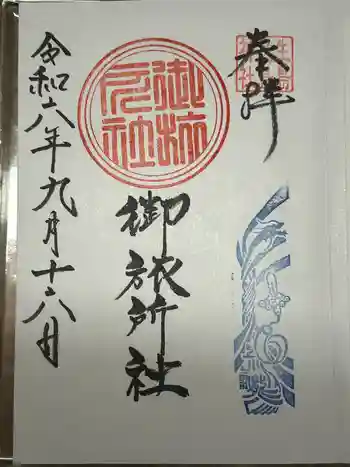 奉拝
御旅所社
令和六年九月十六日